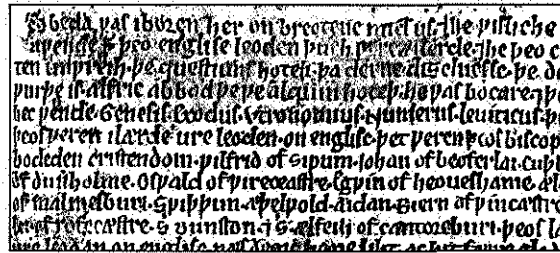 beda ƿas iboren her on breotene mid us ⁊he ƿisliche
aƿende þeo englise leoden þurh ƿeren ilerde ⁊he þeo c
ten unƿreih þe questiuns hoteþ þa derne diȝelnesse þe de
ƿurþe is ælfric abbod þe ƿe alquin hoteþ he ƿas bocare ⁊ þe
bec ƿende Genesis Exodus Vtronomius Numerus leuiticus þ
þeos ƿeren ilærde ure leoden on englisc þet ƿeren þeos biscop
bodeden cristendom ƿilfrid of ripum iohan of beoferlai cuþ
of dunholme Osƿald of ƿireceastre Egƿin of heoueshame æl
of malmesburi Sƿiþþun æþelƿold aidan Biern of ƿincæstre
of rofecæstre s dunston ⁊ s ælfeih of cantoreburi þeos l
ure leodan on englisc næs deorc heore liht ac hit fæire glo